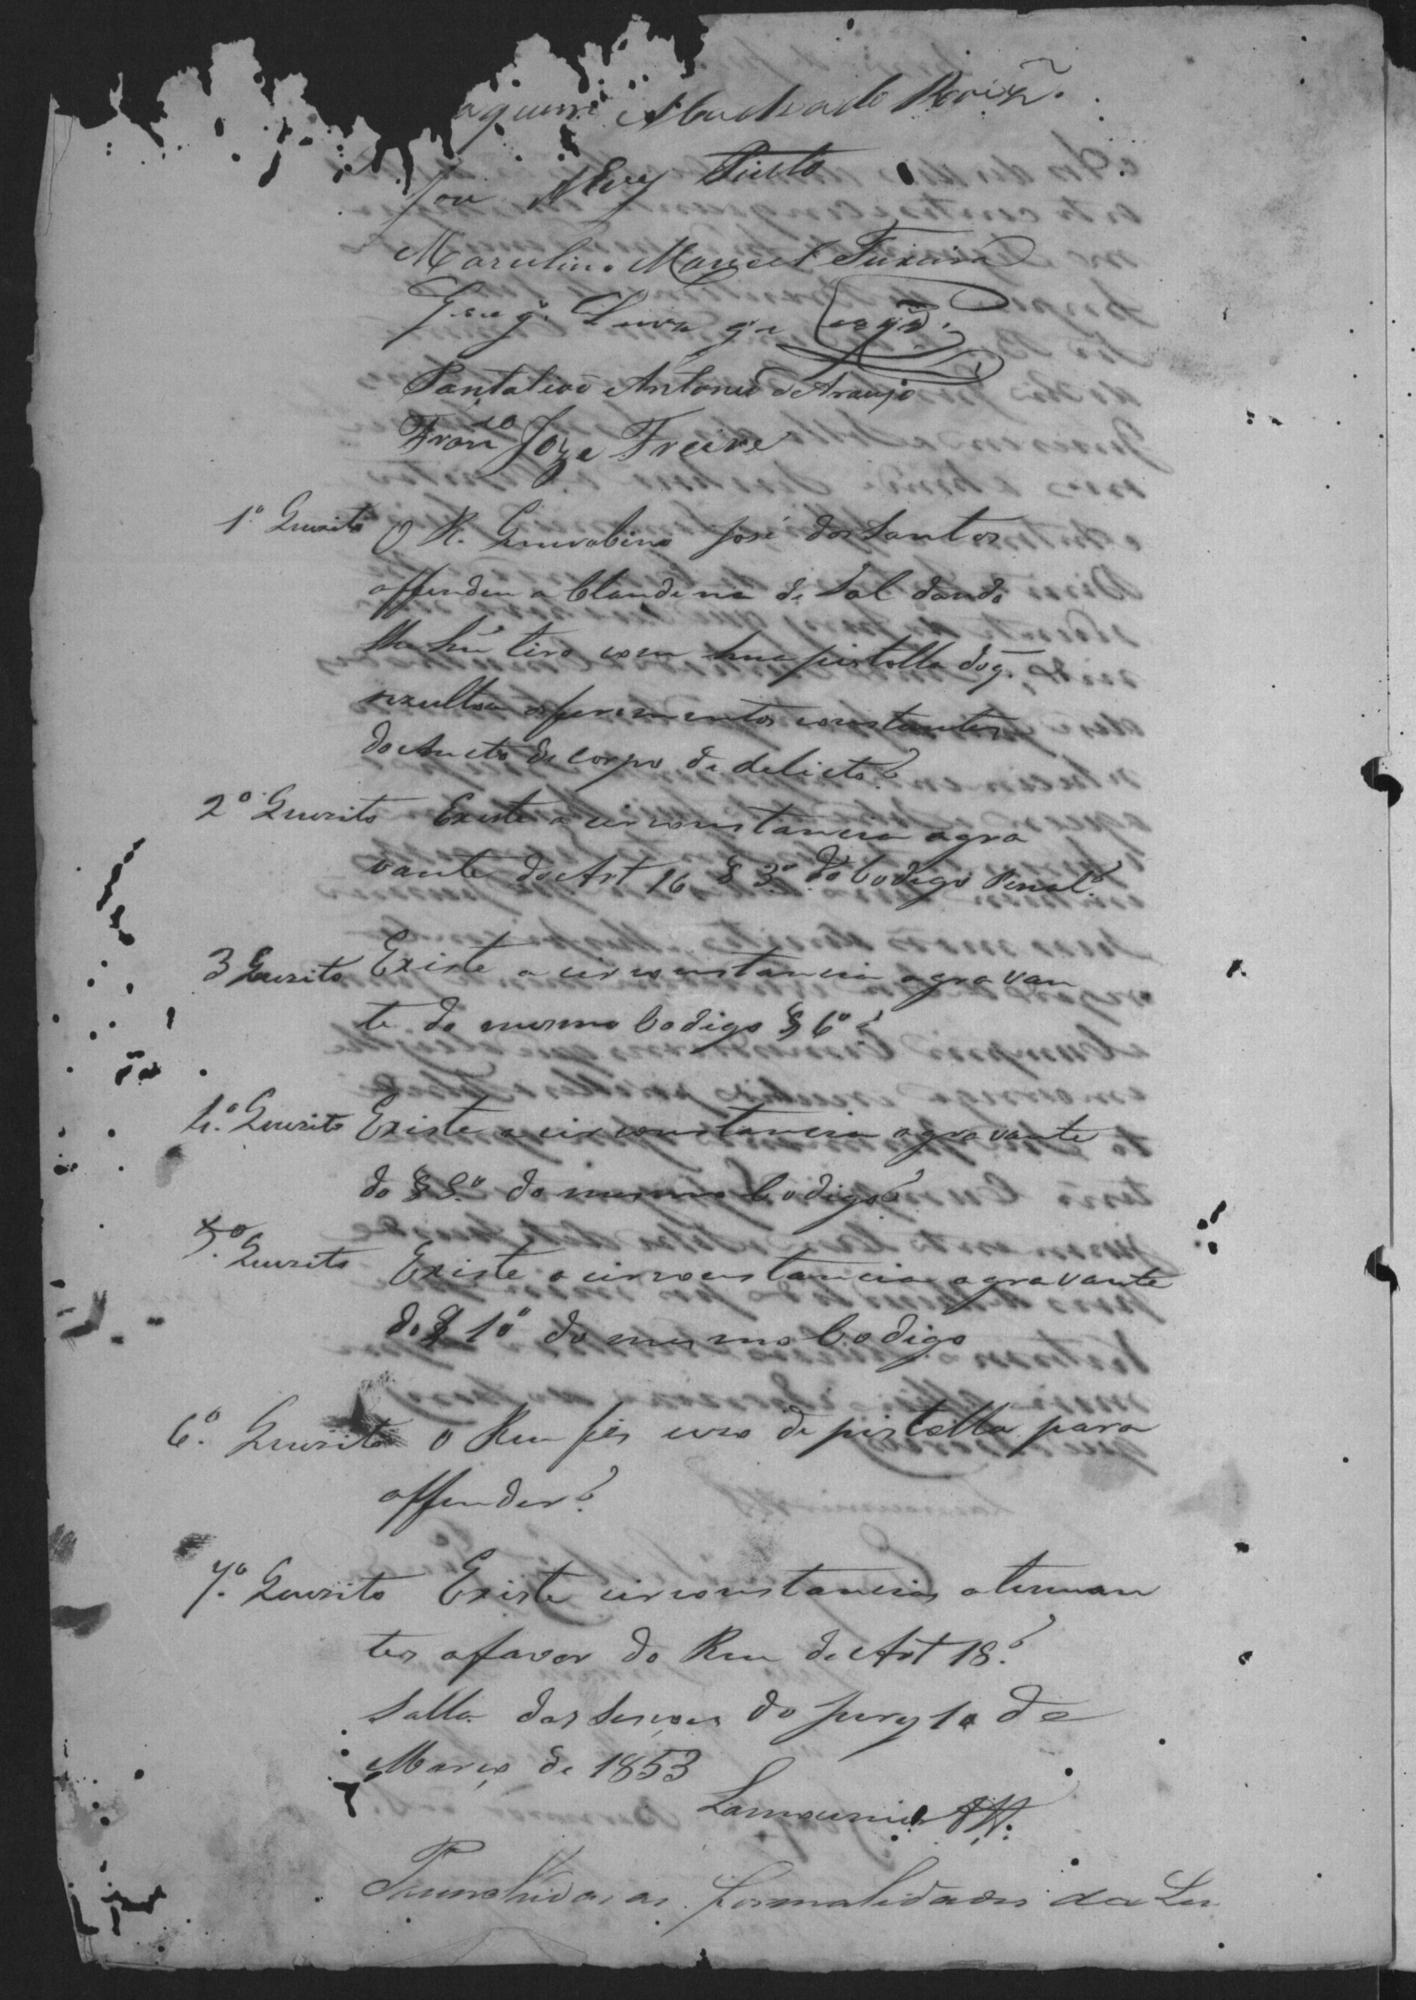 Machado Roiz.
Joze Alves Pinto
Marculino Manoel Teixeira
Pantaleaõ Antonio de Araujo
Franco Joze Freire
1º Quesito O R. José dos Santos
offendeu a Claudina de Sal dando
lhe hũ tiro com hua pistolla do q.
resultou os ferimentos constantes
do Aucto de corpo de delicto?
2º Quesito Existe a circonstancia agra
vante do Art 16 § 3.º do Codigo Penal?
3 Quesito Existe a circonstancia agravan
te do mesmo Codigo § 6º?
4º Quesito Existe a circonstancia agravante
do § 8.º do mesmo Codigo?
5º Quesito Existe a circonstancia agravante
do § 10 do mesmo Codigo
6º Quesito O Reu fes uso de pistolla para
offender?
7º Quesito Existe circonstancias atenuan
tes a favor do Reu do Art 18?
Salla das Sesoes do jury 10 de
Março de 1853
Lamounier
Prenchidas as formalidades da Lei